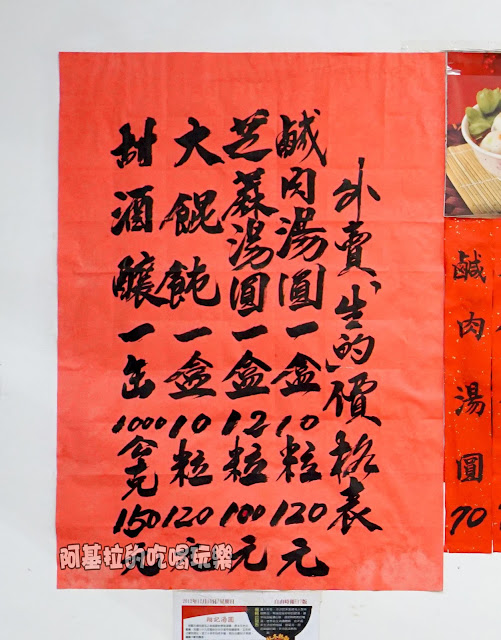 外賣"生的"價格表
鹹肉湯圓一盒10粒120元
芝蔴湯圓一盒12粒100元
大餛飩一盒10粒120元
甜酒釀一缶1000公克150元
鹹肉湯圓70
阿基拉的吃喝玩樂